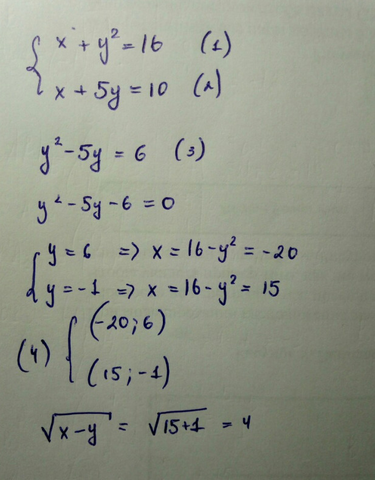 x + y² = 16 (1)
x + 5y = 10 (2)
y² - 5y = 6 (3)
y² - 5y - 6 = 0
y = 6 => x = 16 - y² = -20
y = -1 => x = 16 - y² = 15
(4) { (-20; 6)
(15; -1)
√x-y = √15+1 = 4